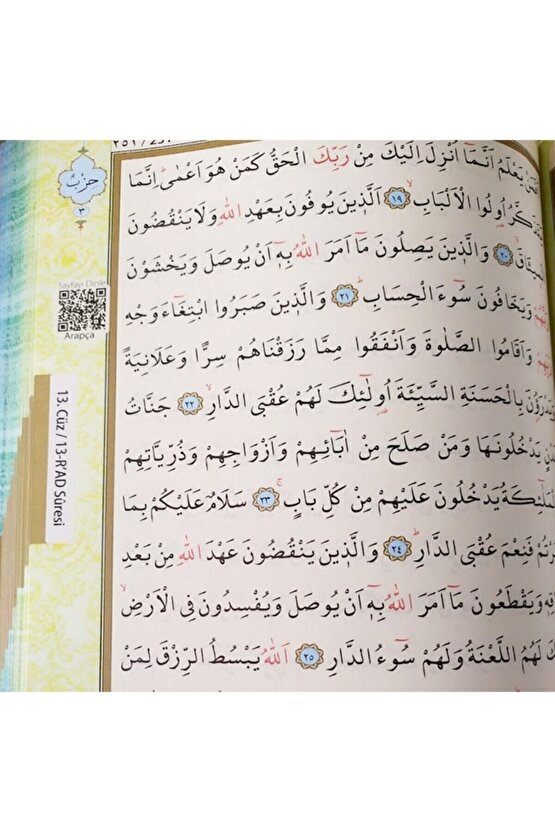 ٢٥١ / 251
حِزْبٌ
٣
Sayfayı Dinle
Arapça
13. Cüz / 13-R'AD Sûresi
يَعْلَمُ اَنَّمَٓا اُنْزِلَ اِلَيْكَ مِنْ رَبِّكَ الْحَقُّ كَمَنْ هُوَ اَعْمٰىۜ اِنَّمَا
اُو۬لُوا الْاَلْبَابِۙ ﴿١٩﴾ اَلَّذ۪ينَ يُوفُونَ بِعَهْدِ اللّٰهِ وَلَا يَنْقُضُونَ
﴿٢٠﴾ وَالَّذ۪ينَ يَصِلُونَ مَٓا اَمَرَ اللّٰهُ بِه۪ٓ اَنْ يُوصَلَ وَيَخْشَوْنَ
وَيَخَافُونَ سُٓوءَ الْحِسَابِۜ ﴿٢١﴾ وَالَّذ۪ينَ صَبَرُوا ابْتِغَٓاءَ وَجْهِ
وَاَقَامُوا الصَّلٰوةَ وَاَنْفَقُوا مِمَّا رَزَقْنَاهُمْ سِرًّا وَعَلَانِيَةً
بِالْحَسَنَةِ السَّيِّئَةَ اُو۬لٰٓئِكَ لَهُمْ عُقْبَى الدَّارِۙ ﴿٢٢﴾ جَنَّاتُ
يَدْخُلُونَهَا وَمَنْ صَلَحَ مِنْ اٰبَٓائِهِمْ وَاَزْوَاجِهِمْ وَذُرِّيَّاتِهِمْ
يَدْخُلُونَ عَلَيْهِمْ مِنْ كُلِّ بَابٍۚ ﴿٢٣﴾ سَلَامٌ عَلَيْكُمْ بِمَا
فَنِعْمَ عُقْبَى الدَّارِۜ ﴿٢٤﴾ وَالَّذ۪ينَ يَنْقُضُونَ عَهْدَ اللّٰهِ مِنْ بَعْدِ
وَيَقْطَعُونَ مَٓا اَمَرَ اللّٰهُ بِه۪ٓ اَنْ يُوصَلَ وَيُفْسِدُونَ فِي الْاَرْضِۙ
لَهُمُ اللَّعْنَةُ وَلَهُمْ سُٓوءُ الدَّارِ ﴿٢٥﴾ اَللّٰهُ يَبْسُطُ الرِّزْقَ لِمَنْ